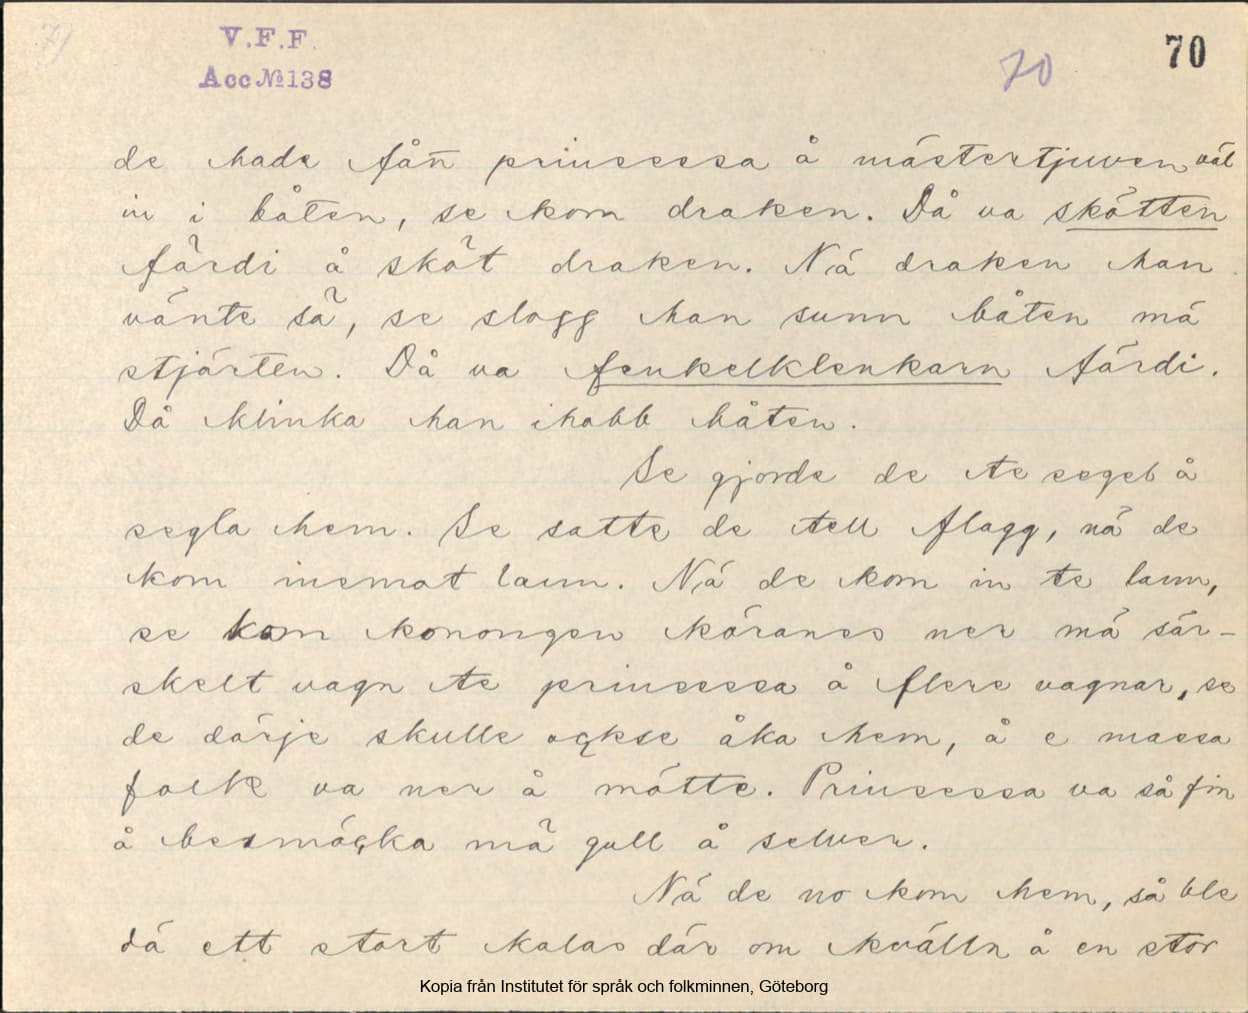 V.F.F.
Acc №138
70
70
de hade fån prinsessa å mästertjuven väl
in i båten, se kom draken. Då va skötten
färdi å sköt draken. Nä draken han
vänte sä, se slogg han sunn båten mä
stjärten. Då va fenkelklenkarn färdi.
Då klinka han ihobb båten.
Se gjorde de te segel å
segla hem. Se satte de tell flagg, nä de
kom inemot lann. Nä de kom in te lann,
se kom konongen köranes ner mä sär-
skelt vagn te prinsessa å flere vagnar, se
de därje skulle ockse åka hem, å e massa
folk va ner å mötte. Prinsessa va så fin
å besmöcka mä gull å selver.
Nä de no kom hem, så ble
dä ett stort kalas där om kvälln å en stor
Kopia från Institutet för språk och folkminnen, Göteborg